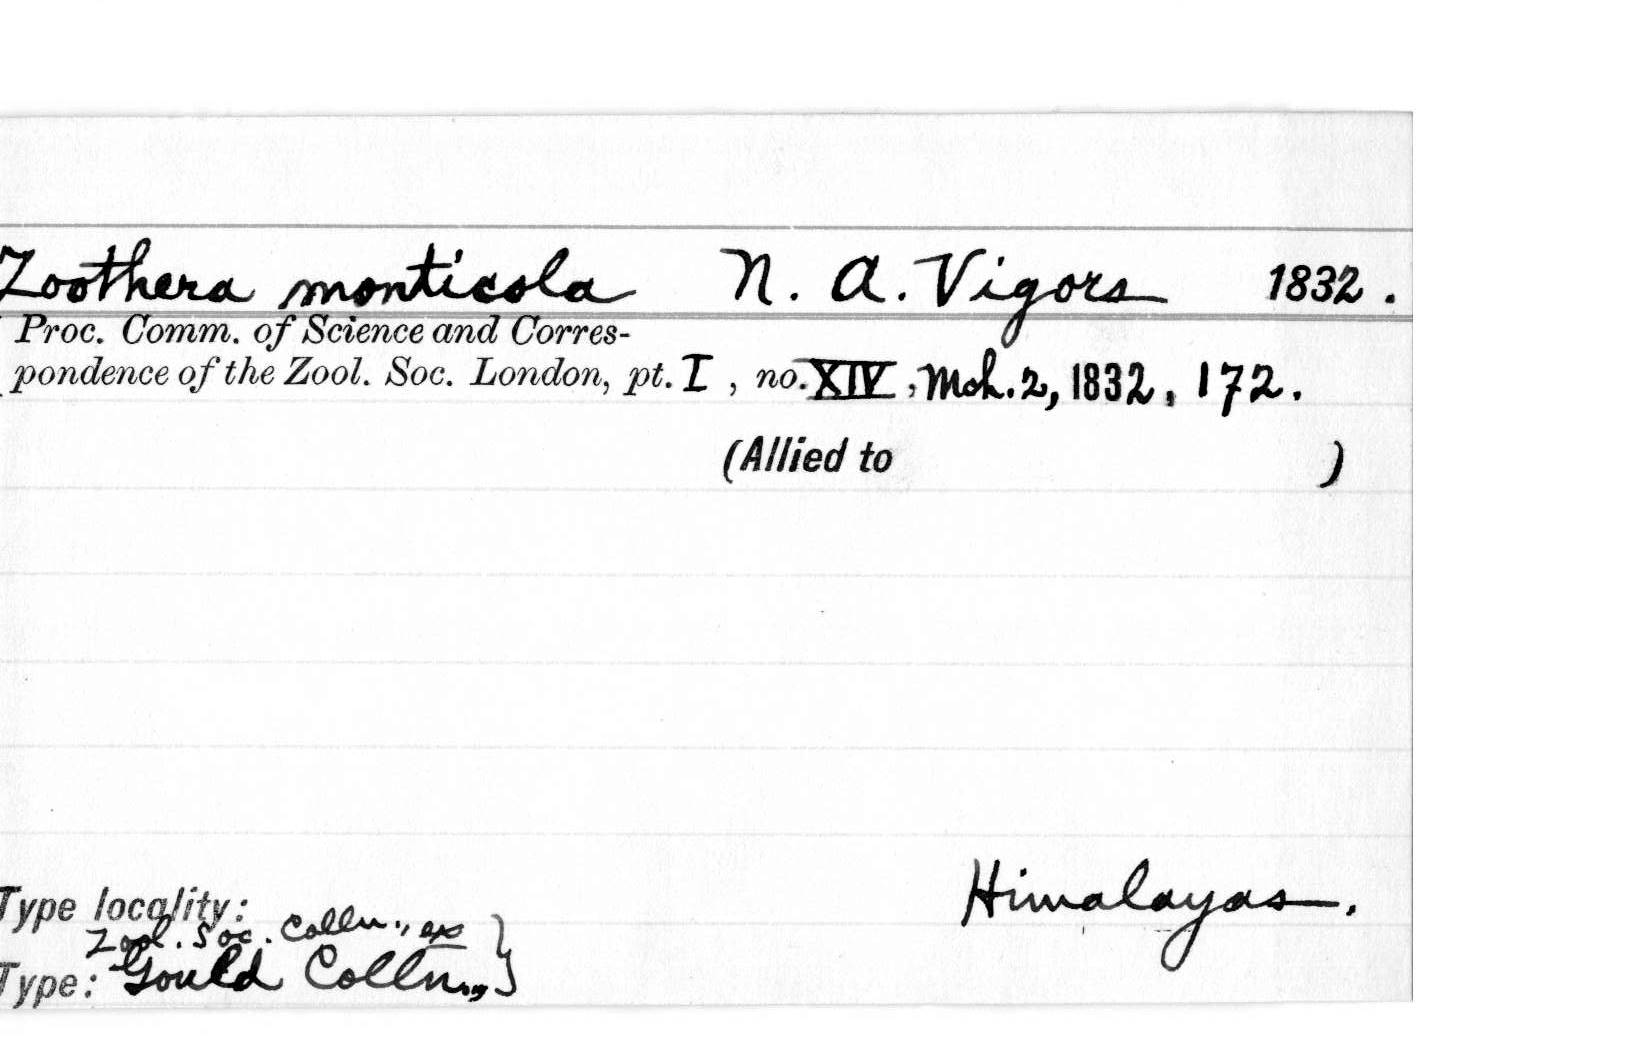 Zoothera monticola N. A. Vigors 1832.
Proc. Comm. of Science and Corres-
pondence of the Zool. Soc. London, pt. I, no. XIV, Mch. 2, 1832, 172.
(Allied to )
Himalayas.
Type locality:
Zool. Soc. Colln., ex }
Type: Gould Colln.,